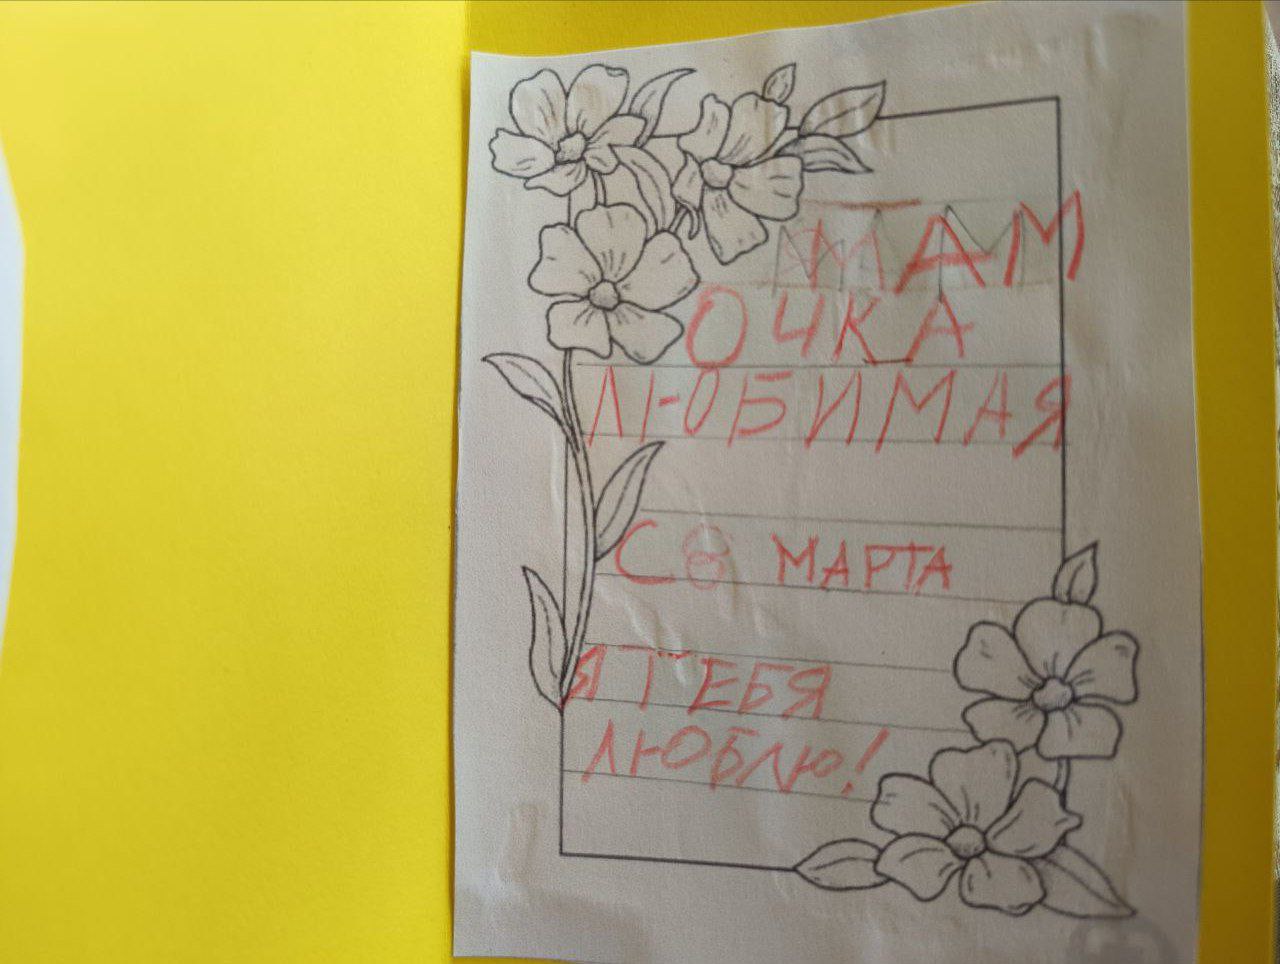 МАМ
ОЧКА
ЛЮБИМАЯ
С 8 МАРТА
Я ТЕБЯ
ЛЮБЛЮ!